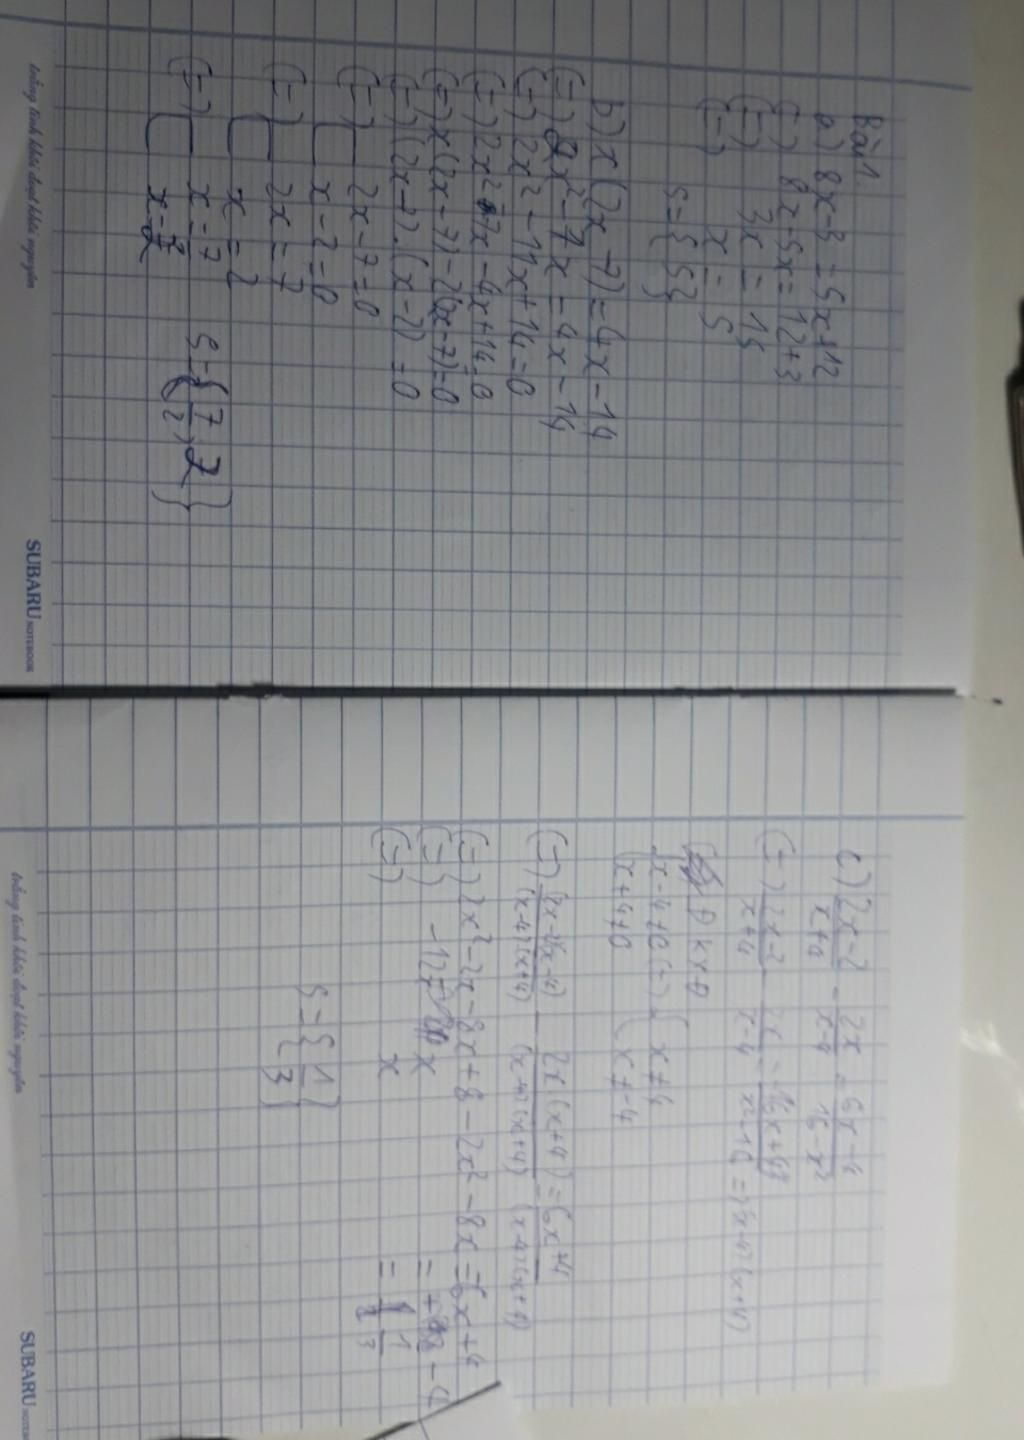 Bài 1.
a) 8x-3 = 5x+12
(=) 8x-5x = 12+3
(=) 3x = 15
(=) x = 5
S={5}
b) x(2x-7) = 4x-14
(=) 2x²-7x = 4x-14
(=) 2x²-11x+14=0
(=) 2x²-7x-4x+14=0
(=) x(2x-7)-2(2x-7)=0
(=) (2x-7).(x-2)=0
(=) [ 2x-7=0
x-2=0
(=) [ 2x=7
x=2
(=) [ x=7
x=2
S={7/2, 2}
trắng tinh khôi đoạt khôi nguyên
SUBARU NOTEBOOK
c) 2x-2/x+4 - 2x/x-4 = 6x-4/16-x²
(=) 2x-2/x+4 - 2x/x-4 = -6x+4/x²-16 = (x-4)(x+4)
ĐKXĐ
{ x-4≠0 (=) { x≠4
x+4≠0 x≠-4
(=) (2x-2)(x-4)/(x-4)(x+4) - 2x(x+4)/(x-4)(x+4) = -6x+4/(x-4)(x+4)
(=) 2x²-2x-8x+8-2x²-8x = -6x+4
(=) -12x
(=) x = 1/3
S={1/3}
trắng tinh khôi đoạt khôi nguyên
SUBARU